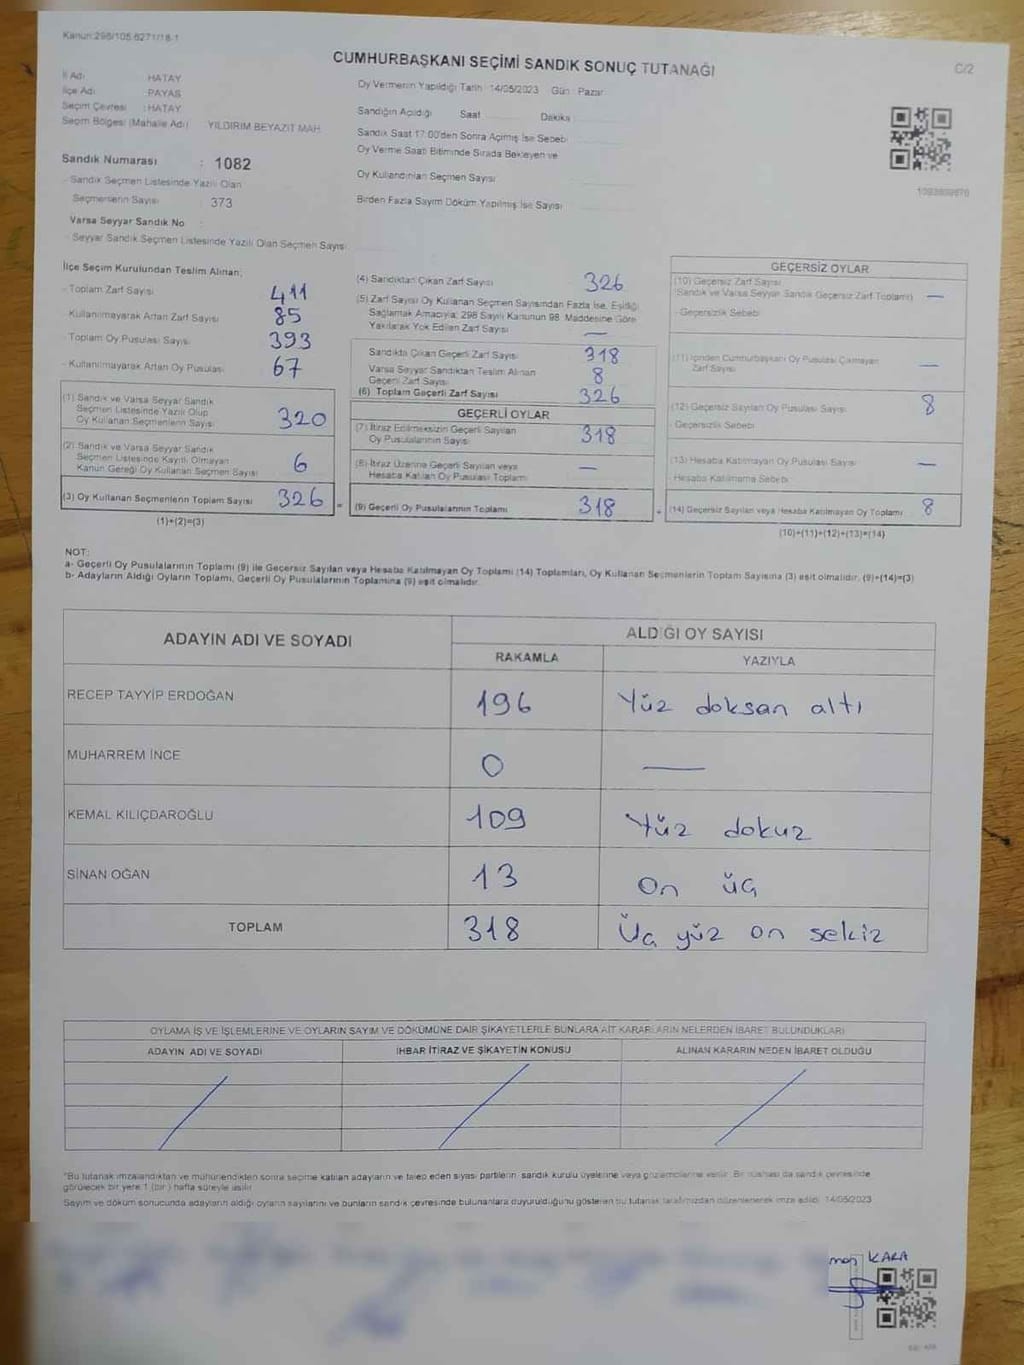 Kanun:298/105.6271/18-1
CUMHURBAŞKANI SEÇİMİ SANDIK SONUÇ TUTANAĞI
C/2
İl Adı : HATAY
İlçe Adı : PAYAS
Seçim Çevresi : HATAY
Seçim Bölgesi (Mahalle Adı) YILDIRIM BEYAZIT MAH.
Sandık Numarası : 1082
- Sandık Seçmen Listesinde Yazılı Olan
Seçmenlerin Sayısı : 373
Varsa Seyyar Sandık No :
- Seyyar Sandık Seçmen Listesinde Yazılı Olan Seçmen Sayısı
Oy Vermenin Yapıldığı Tarih : 14/05/2023 Gün : Pazar
Sandığın Açıldığı Saat Dakika
Sandık Saat 17:00'den Sonra Açılmış İse Sebebi
Oy Verme Saati Bitiminde Sırada Bekleyen ve
Oy Kullandırılan Seçmen Sayısı
Birden Fazla Sayım Döküm Yapılmış İse Sayısı
İlçe Seçim Kurulundan Teslim Alınan;
- Toplam Zarf Sayısı 411
- Kullanılmayarak Artan Zarf Sayısı 85
- Toplam Oy Pusulası Sayısı 393
- Kullanılmayarak Artan Oy Pusulası 67
(1) Sandık ve Varsa Seyyar Sandık
Seçmen Listesinde Yazılı Olup
Oy Kullanan Seçmenlerin Sayısı 320
(2) Sandık ve Varsa Seyyar Sandık
Seçmen Listesinde Kayıtlı Olmayan
Kanun Gereği Oy Kullanan Seçmen Sayısı 6
(3) Oy Kullanan Seçmenlerin Toplam Sayısı 326 =
(1)+(2)=(3)
(4) Sandıktan Çıkan Zarf Sayısı 326
(5) Zarf Sayısı Oy Kullanan Seçmen Sayısından Fazla İse, Eşitliği
Sağlamak Amacıyla; 298 Sayılı Kanunun 98. Maddesine Göre
Yakılarak Yok Edilen Zarf Sayısı —
Sandıkta Çıkan Geçerli Zarf Sayısı 318
Varsa Seyyar Sandıktan Teslim Alınan
Geçerli Zarf Sayısı 8
(6) Toplam Geçerli Zarf Sayısı 326
GEÇERLİ OYLAR
(7) İtiraz Edilmeksizin Geçerli Sayılan
Oy Pusulalarının Sayısı 318
(8) İtiraz Üzerine Geçerli Sayılan veya
Hesaba Katılan Oy Pusulası Toplamı —
(9) Geçerli Oy Pusulalarının Toplamı 318 +
GEÇERSİZ OYLAR
(10) Geçersiz Zarf Sayısı
(Sandık ve Varsa Seyyar Sandık Geçersiz Zarf Toplamı) —
- Geçersizlik Sebebi
(11) İçinden Cumhurbaşkanı Oy Pusulası Çıkmayan
Zarf Sayısı —
(12) Geçersiz Sayılan Oy Pusulası Sayısı 8
- Geçersizlik Sebebi
(13) Hesaba Katılmayan Oy Pusulası Sayısı —
- Hesaba Katılmama Sebebi
(14) Geçersiz Sayılan veya Hesaba Katılmayan Oy Toplamı 8
(10)+(11)+(12)+(13)=(14)
NOT:
a- Geçerli Oy Pusulalarının Toplamı (9) ile Geçersiz Sayılan veya Hesaba Katılmayan Oy Toplamı (14) Toplamları, Oy Kullanan Seçmenlerin Toplam Sayısına (3) eşit olmalıdır. (9)+(14)=(3)
b- Adayların Aldığı Oyların Toplamı, Geçerli Oy Pusulalarının Toplamına (9) eşit olmalıdır.
ADAYIN ADI VE SOYADI
ALDIĞI OY SAYISI
RAKAMLA YAZIYLA
RECEP TAYYİP ERDOĞAN 196 Yüz doksan altı
MUHARREM İNCE 0 —
KEMAL KILIÇDAROĞLU 109 Yüz dokuz
SİNAN OĞAN 13 On üç
TOPLAM 318 Üç yüz on sekiz
OYLAMA İŞ VE İŞLEMLERİNE VE OYLARIN SAYIM VE DÖKÜMÜNE DAİR ŞİKAYETLERLE BUNLARA AİT KARARLARIN NELERDEN İBARET BULUNDUKLARI
ADAYIN ADI VE SOYADI İHBAR İTİRAZ VE ŞİKAYETİN KONUSU ALINAN KARARIN NEDEN İBARET OLDUĞU
*Bu tutanak imzalandıktan ve mühürlendikten sonra seçime katılan adayların ve talep eden siyasi partilerin sandık kurulu üyelerine veya gözlemcilerine verilir. Bir nüshası da sandık çevresinde
görülecek bir yere 1 (bir) hafta süreyle asılır.
Sayım ve döküm sonucunda adayların aldığı oyların sayılarını ve bunların sandık çevresinde bulunanlara duyurulduğunu gösteren bu tutanak tarafımızdan düzenlenerek imza edildi. 14/05/2023
KARA